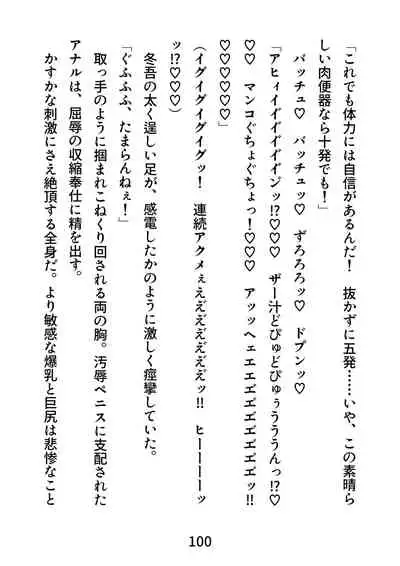 「これでも体力には自信があるんだ！　抜かずに五発……いや、この素晴ら
しい肉便器なら十発でも！」
バッチュ♡　バッチュッ♡　ずろろろッ♡　ドプンッ♡
「アヒィイイ゙イ゙イ゙イ゙イ゙ンッ!?♡♡♡　ザー汁どぴゅどぴゅぅうううんっ!?♡
♡♡　マンコぐちょぐちょっ！♡♡♡　アッッヘェエエエ゙エ゙エ゙エ゙エ゙エ゙ッ!!
♡♡♡♡♡」
（イグイグイグイグッ！　連続アクメぇええ゙え゙え゙え゙え゙ッ!!　ヒーーーーッ
ッ!?♡♡♡）
冬吾の太く逞しい足が、感電したかのように激しく痙攣していた。
「ぐふふふ、たまらんねぇ！」
取っ手のように掴まれこねくり回される両の胸。汚辱ペニスに支配された
アナルは、屈辱の収縮奉仕に精を出す。
かすかな刺激にさえ絶頂する全身だ。より敏感な爆乳と巨尻は悲惨なこと
100